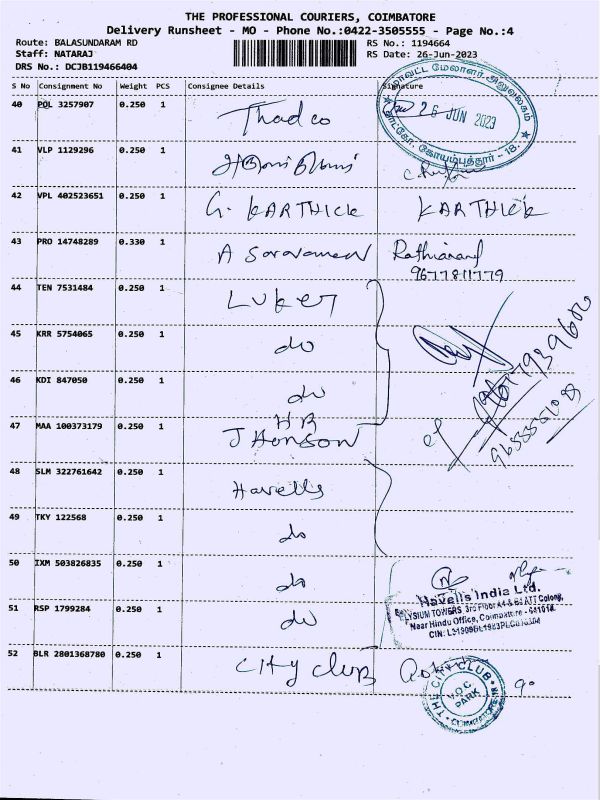 THE PROFESSIONAL COURIERS, COIMBATORE
Delivery Runsheet - MO - Phone No.:0422-3505555 - Page No.:4
Route: BALASUNDARAM RD
Staff: NATARAJ
DRS No.: DCJB119466404
RS No.: 1194664
RS Date: 26-Jun-2023
S No Consignment No Weight PCS Consignee Details Signature
40 PQL 3257907 0.250 1 Thadco
26 JUN 2023
41 VLP 1129296 0.250 1
42 VPL 402523651 0.250 1 G. KARTHICK KARTHICK
43 PRO 14748289 0.330 1 A Saravanan Rathianand
9677811779
44 TEN 7531484 0.250 1
45 KRR 5754065 0.250 1 do
46 KDI 847050 0.250 1 do
47 MAA 100373179 0.250 1 HB
J Henson
48 SLM 322761642 0.250 1 Havells
49 TKY 122568 0.250 1 do
50 IXM 503826835 0.250 1 do
Havells India Ltd.
ELYSIUM TOWERS 3rd Floor ATT Colony,
Near Hindu Office, Coimbatore - 641018.
51 RSP 1799284 0.250 1 do
52 BLR 2801368780 0.250 1 City Club
THE CITY CLUB
V.O.C.
PARK